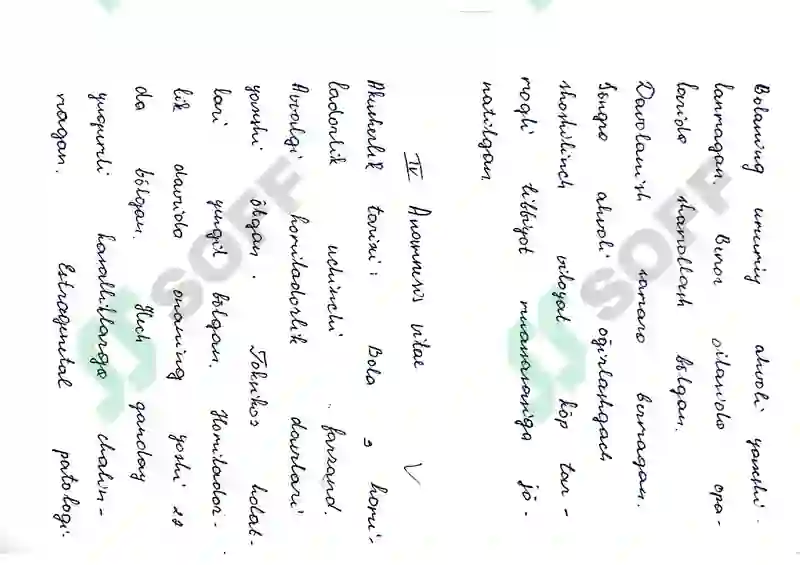 Bolaning umumiy ahvoli yaxshi-
lanmagan. Biroz oilasida opa-
larida shamollash bo'lgan.
Davolanish samara bermagan.
So'ngra ahvoli og'irlashgach
shoshilinch viloyat ko'p tar-
moqli tibbiyot muassasasiga jo'-
natilgan
IV Anamnesis vitae
Akusherlik tarixi: Bola 3 homi-
ladorlik uchinchi farzand.
Avvalgi homiladorlik davrlari
yaxshi o'tgan. Toksikoz holat-
lari yengil bo'lgan. Homilador-
lik davrida onaning yoshi 28
da bo'lgan. Hech qanday
yuqumli kasalliklarga chalin-
magan. Estragenital patologi-
SOFF
SOFF